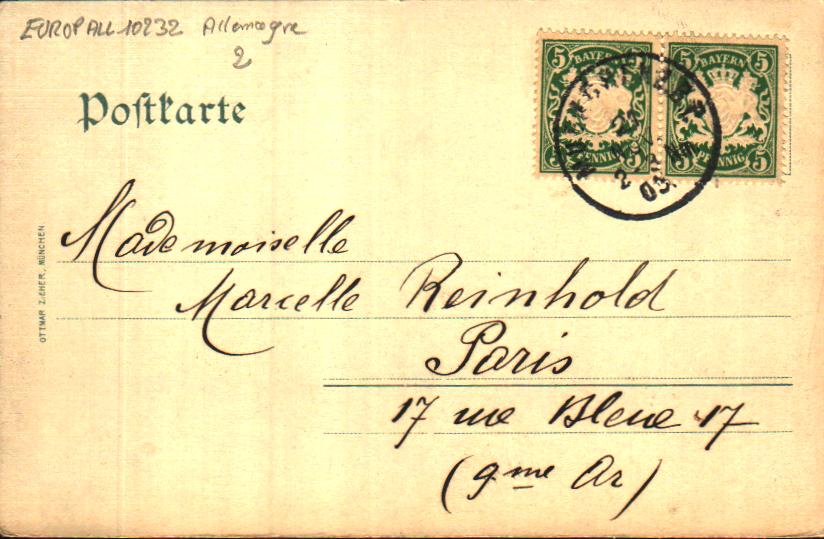 EUROPALL 10232 Allemagne
2
Postkarte
5 BAYERN 5 5 BAYERN 5
5 PFENNIG 5 5 PFENNIG 5
03
OTTMAR ZIEHER, MÜNCHEN
Mademoiselle
Marcelle Reinhold
Paris
17 rue Bleue 17
(9me Ar)